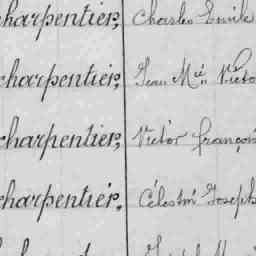 Charpentier, Charles Emile
Charpentier, Jean Mie Victo
Charpentier, Victor françois
Charpentier, Célestin Joseph